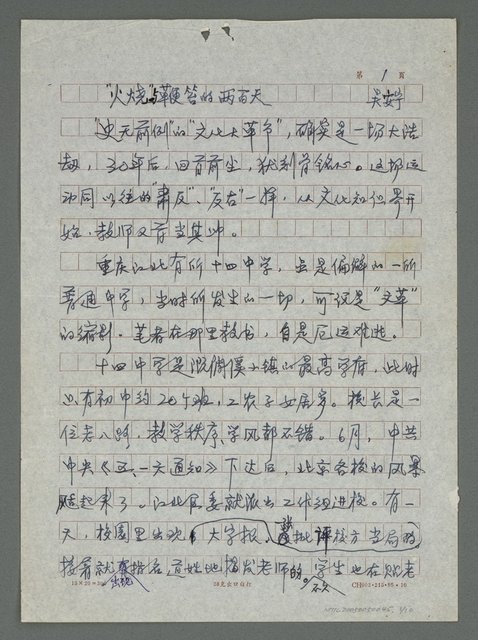 第 1 页
"火烧"与鞭笞的两百天 吴安宁
"史无前例"的"文化大革命",确实是一场大浩
劫,30年后,回首前尘,犹刻骨铭心。这场运
动同以往的"肃反"、反右"一样,从文化知识界开
始,教师又首当其冲。
重庆江北有所十四中学,虽是偏僻的一所
普通中学,当时所发生的一切,可说是"文革"
的缩影。笔者在那里教书,自是厄运难逃。
十四中学是溉澜溪小镇的最高学府,此时
只有初中约20个班,工农子女居多。校长是一
位老八路,教学秩序学风都不错。6月,中共
中央《五·一六通知》下达后,北京各校的风暴
刮起来了。江北区委就派出工作组进校。有一
天,校园里出现大字报,批评校方当局的。
接着就出现指名道姓地揭发老师的。学生也在贴老
15×20=300
CH002·215·85·10